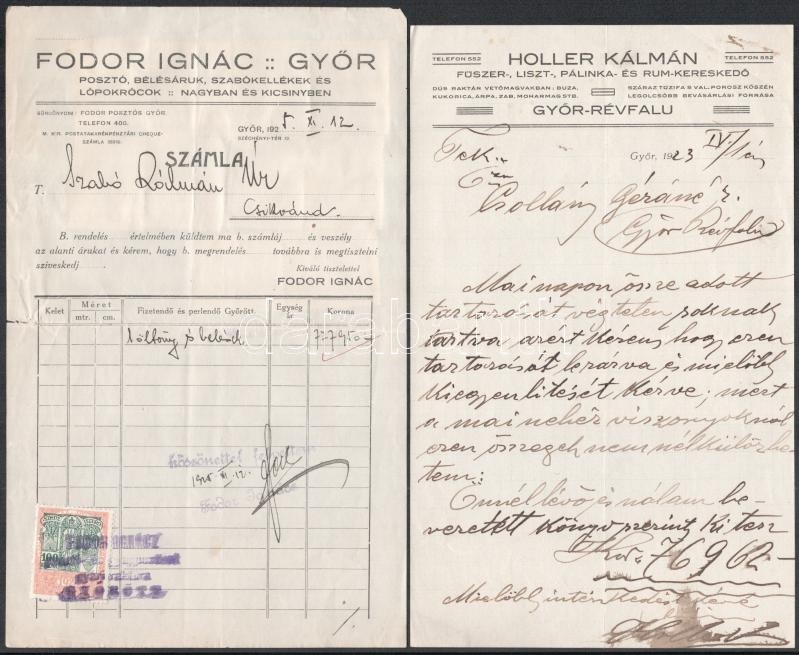 FODOR IGNÁC :: GYŐR
POSZTÓ, BÉLÉSÁRUK, SZABÓKELLÉKEK ÉS
LÓPOKRÓCOK :: NAGYBAN ÉS KICSINYBEN
SÜRGÖNYCIM: FODOR POSZTÓS GYŐR.
TELEFON 400.
M. KIR. POSTATAKARÉKPÉNZTÁRI CHEQUE-
SZÁMLA
GYŐR, 1925 XI. 12.
SZÉCHENYI-TÉR
SZÁMLA
T. Szabó Kálmán Úr
Csikvánd.
B. rendelés értelmében küldtem ma b. számláj és veszély
az alanti árukat és kérem, hogy b. megrendelés továbbra is megtisztelni
sziveskedj
Kiváló tisztelettel
FODOR IGNÁC
Kelet Méret Fizetendő és perlendő Győrött. Egység ár Korona
mtr. cm.
1 öltöny és bélések 777950
Köszönettel
1925 XI. 12.
Fodor
100
FODOR IGNÁCZ
HOLLER KÁLMÁN
TELEFON 552 TELEFON 552
FŰSZER-, LISZT-, PÁLINKA- ÉS RUM-KERESKEDŐ
DÚS RAKTÁR VETŐMAGVAKBAN: BUZA, KUKORICA, ÁRPA, ZAB, MOHARMAG STB.
SZÁRAZ TŰZIFA S VAL. POROSZ KŐSZÉN LEGOLCSÓBB BEVÁSÁRLÁSI FORRÁSA
GYŐR-RÉVFALU
Győr, 1923 IV/1én
Tek.
Győr Révfalu
Mai napon össze adott
tartozását végtelen soknak
tartva azért kérem, hogy ezen
tartozását lezárva és mielőbb
kiegyenlitését kérve; mert
a mai nehéz viszonyoknál
ezen összegeh nem nélkülözhe-
tem:
Önnél lévő és nálam be-
vezetett könyv szerint kitesz
Kor. 76960
Mielőbb intézkedést kérve